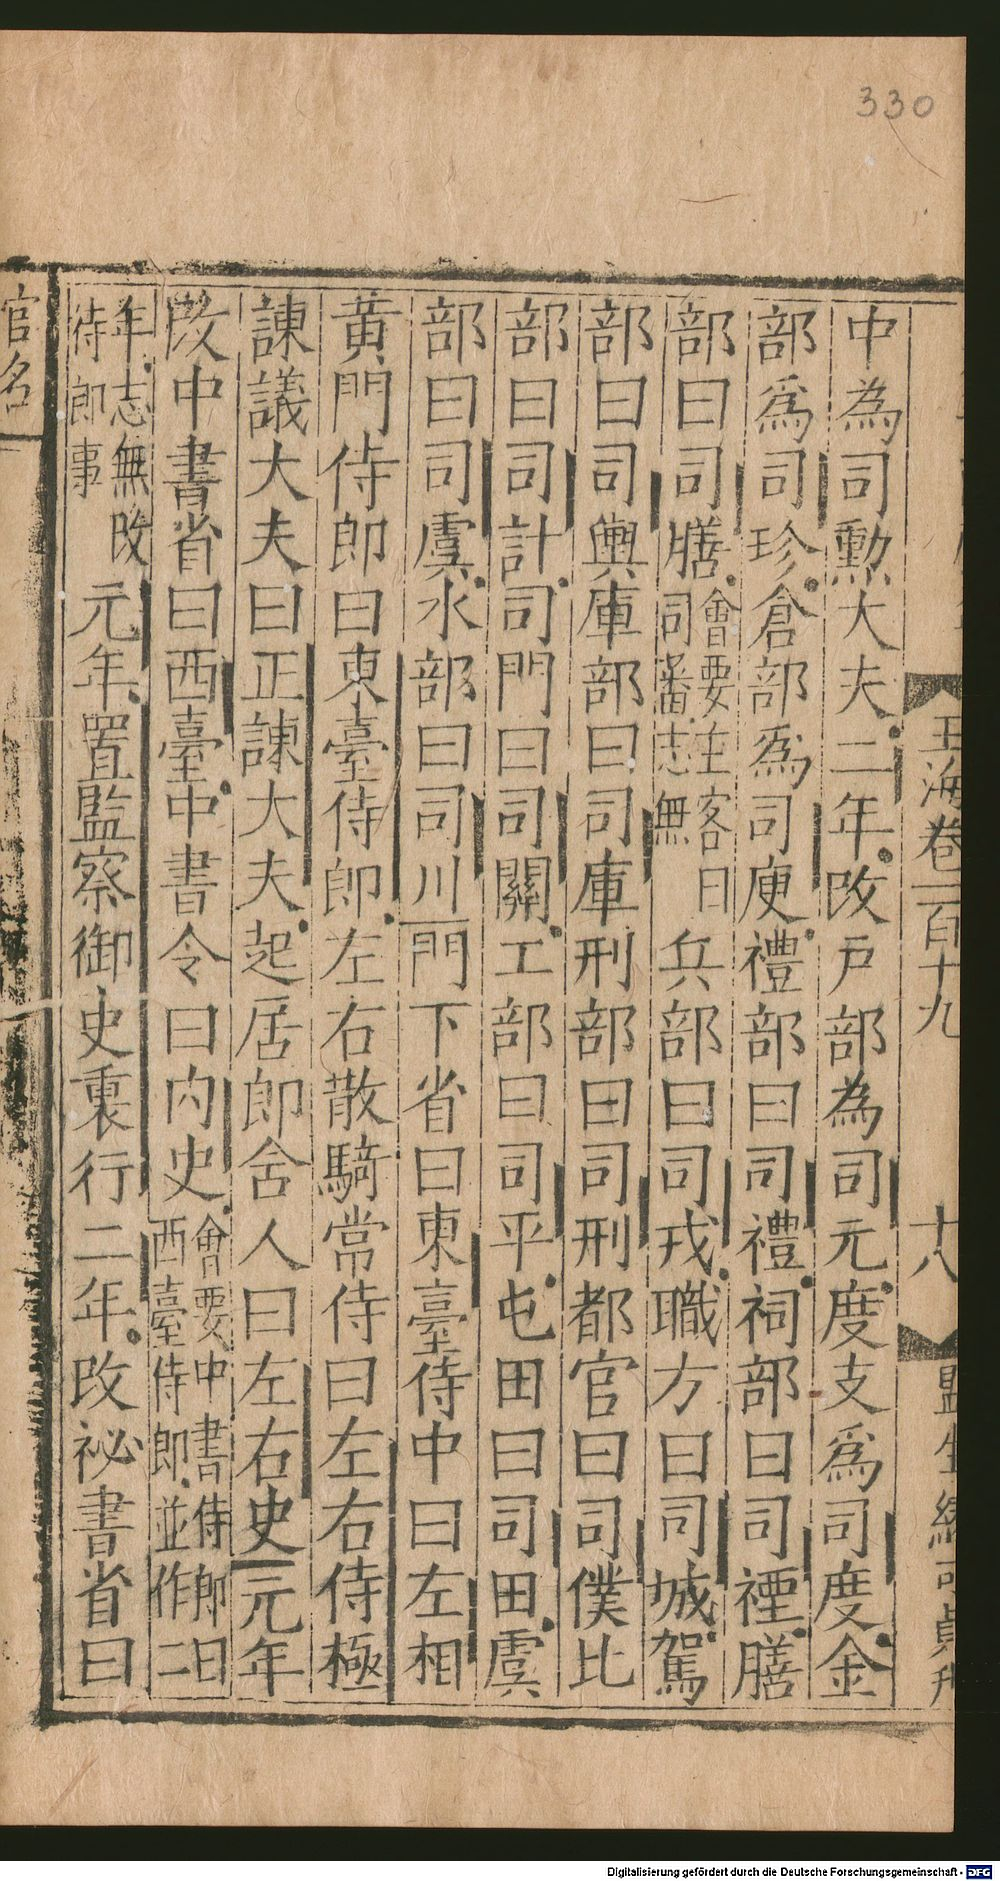 330
玉海卷一百十九
十八
監生
中為司勳大夫二年改戶部為司元度支爲司度金
部爲司珍倉部爲司庾禮部曰司禮祠部曰司禋膳
部曰司膳會要主客曰司蕃志無兵部曰司戎職方曰司城駕
部曰司輿庫部曰司庫刑部曰司刑都官曰司僕比
部曰司計司門曰司關工部曰司平屯田曰司田虞
部曰司虞水部曰司川門下省曰東臺侍中曰左相
黃門侍郎曰東臺侍郎左右散騎常侍曰左右侍極
諫議大夫曰正諫大夫起居郎舍人曰左右史元年
改中書省曰西臺中書令曰內史會要中書侍郎曰西臺侍郎並作二
年志無改侍郎事元年置監察御史裏行二年改祕書省曰
官名
Digitalisierung gefördert durch die Deutsche Forschungsgemeinschaft - DFG